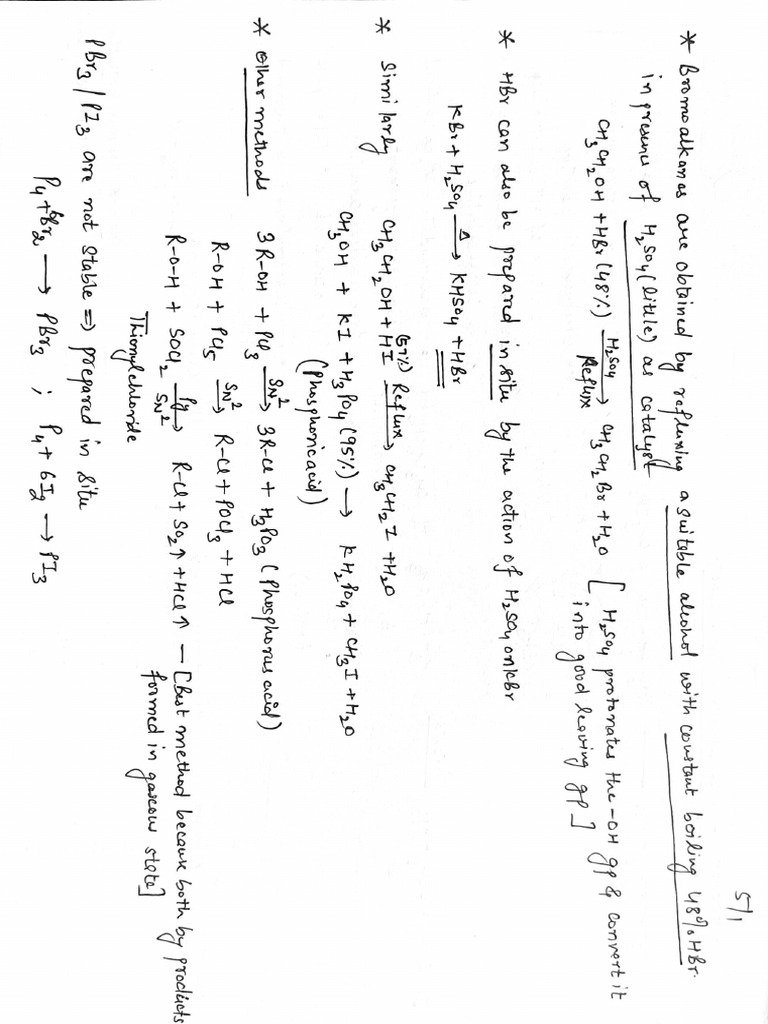 5/1
* Bromoalkanes are obtained by refluxing a suitable alcohol with constant boiling 48% HBr.
in presence of H₂SO₄ (little) as catalyst
CH₃CH₂OH + HBr (48%) —H₂SO₄/Reflux→ CH₃CH₂Br + H₂O [H₂SO₄ protonates the -OH gp & convert it
into good leaving gp]
* HBr can also be prepared in situ by the action of H₂SO₄ on KBr
KBr + H₂SO₄ —Δ→ KHSO₄ + HBr
* Similarly CH₃CH₂OH + HI (57%) —Reflux→ CH₃CH₂I + H₂O
CH₃OH + KI + H₃PO₄ (95%) → KH₂PO₄ + CH₃I + H₂O
(Phosphoric acid)
* Other methods 3R-OH + PCl₃ —SN²→ 3R-Cl + H₃PO₃ (Phosphorus acid)
R-OH + PCl₅ —SN²→ R-Cl + POCl₃ + HCl
R-O-H + SOCl₂ —Py/SN²→ R-Cl + SO₂↑ + HCl↑ — [Best method because both by products
Thionylchloride formed in gaseous state]
PBr₃ / PI₃ are not stable ⇒ prepared in situ
P₄ + 6Br₂ → PBr₃ ; P₄ + 6I₂ → PI₃